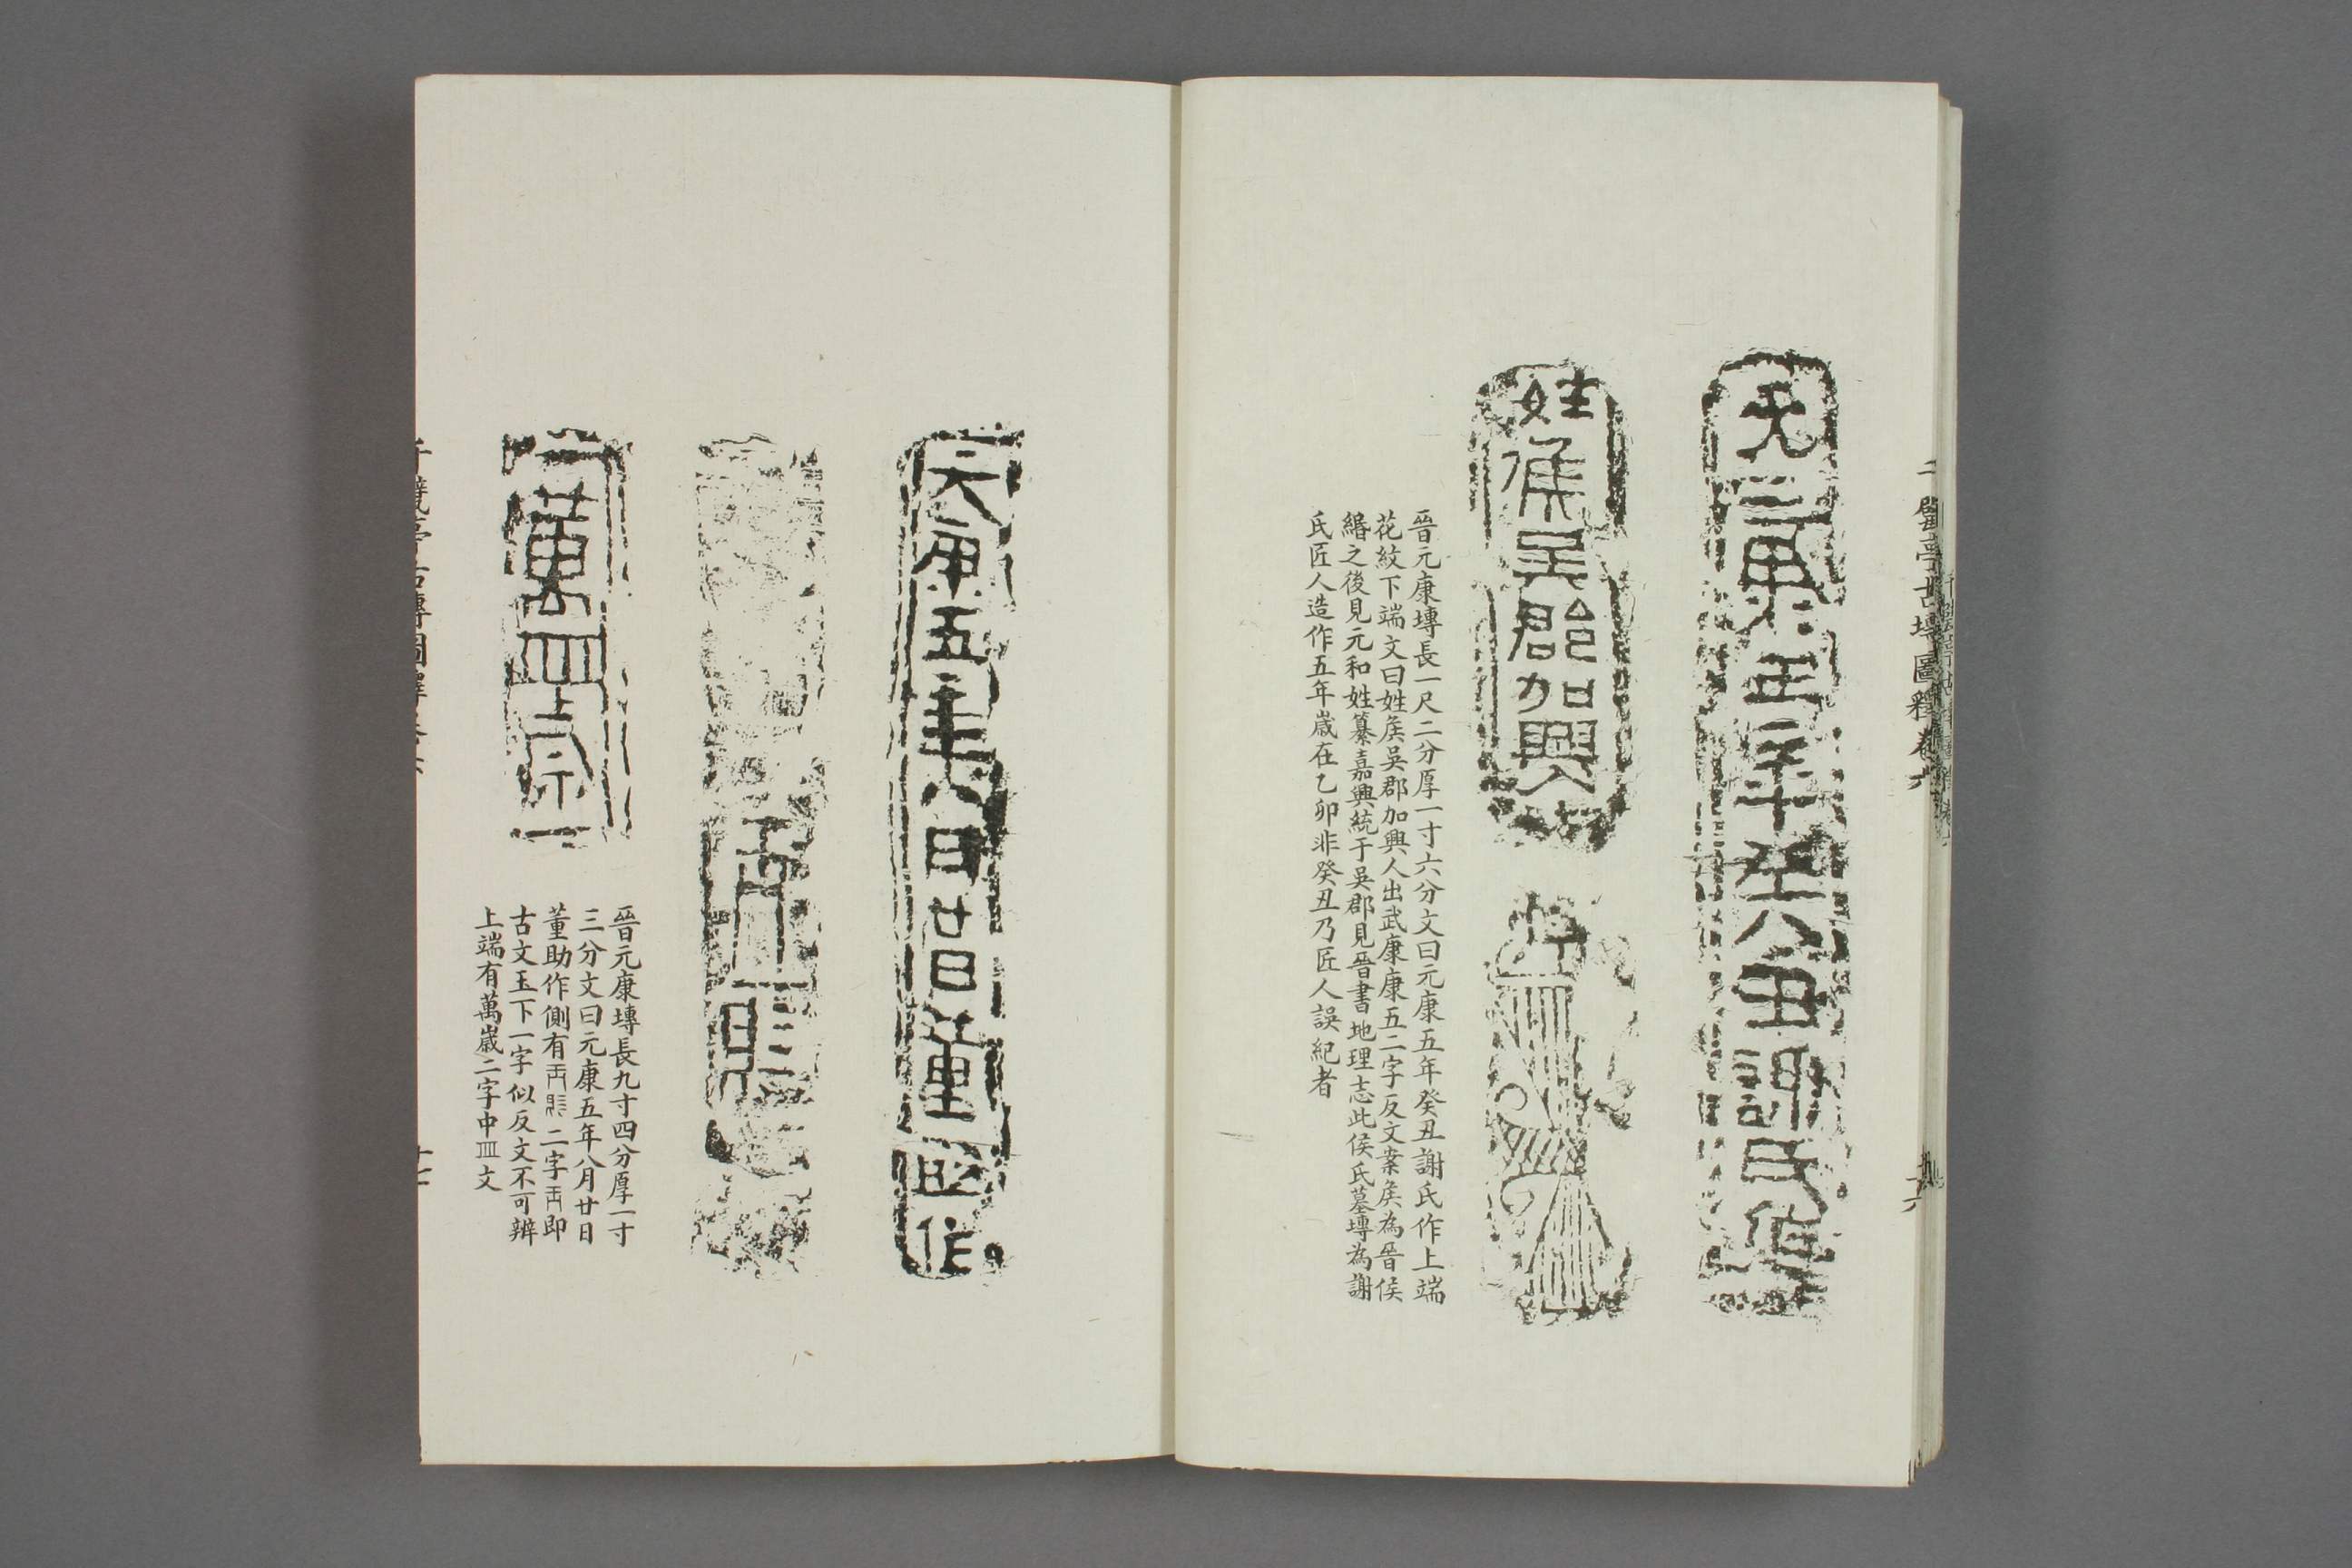 千甓亭古塼圖釋卷六
元康五年癸丑謝氏作
姓矦吳郡加興人
晉元康塼長一尺二分厚一寸六分文曰元康五年癸丑謝氏作上端
花紋下端文曰姓矦吳郡加興人出武康康五二字反文案矦為晉侯
緡之後見元和姓纂嘉興統于吳郡見晉書地理志此侯氏墓塼為謝
氏匠人造作五年歲在乙卯非癸丑乃匠人誤紀者
元康五年八月廿日董助作
萬皿歲
晉元康塼長九寸四分厚一寸
三分文曰元康五年八月廿日
董助作側有二字即
古文玉下一字似反文不可辨
上端有萬歲二字中皿文